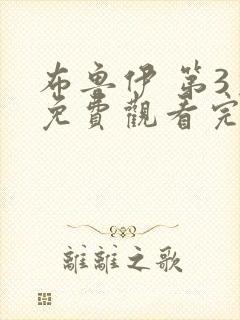 布魯伊 第3
免費觀看完
離離之歌